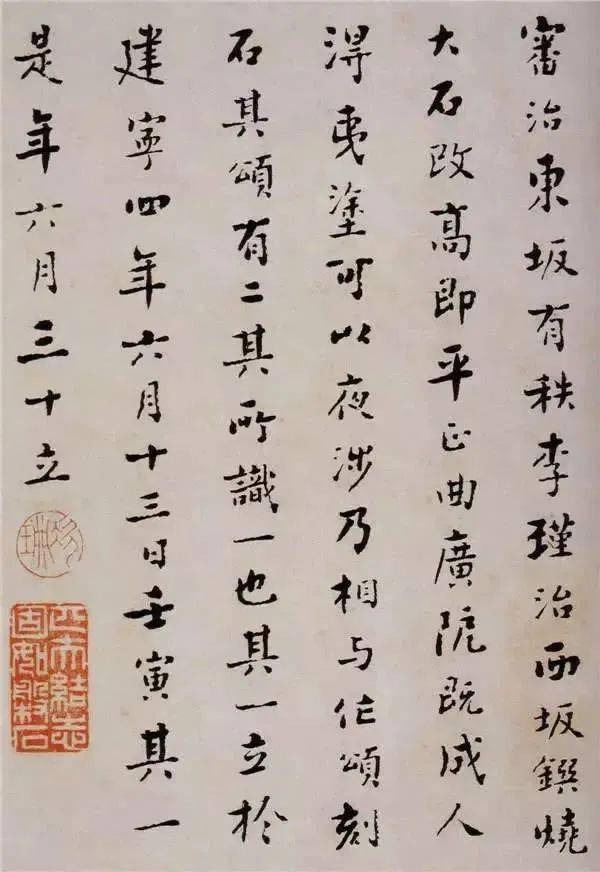 審治東坂有秩李瑾治西坂鐉燒
大石改高即平正曲廣阸既成人
得夷塗可以夜涉乃相与作頌刻
石其頌有二其所識一也其一立於
建寧四年六月十三日壬寅其一
是年六月三十立